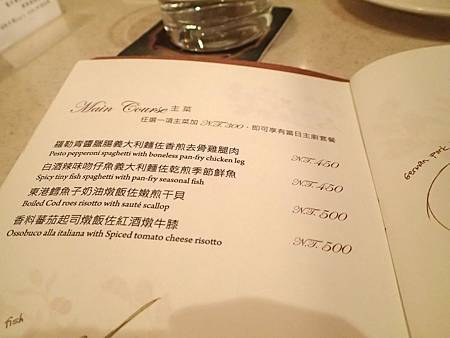 Main Course 主菜
任選一項主菜加 N.T. 300，即可享有當日主廚套餐
羅勒青醬臘腸義大利麵佐香煎去骨雞腿肉 N.T. 450
Pesto pepperoni spaghetti with boneless pan-fry chicken leg
白酒辣味吻仔魚義大利麵佐乾煎季節鮮魚 N.T. 450
Spicy tiny fish spaghetti with pan-fry seasonal fish
東港鱈魚子奶油燉飯佐嫩煎干貝 N.T. 500
Boiled Cod roes risotto with sauté scallop
香料蕃茄起司燉飯佐紅酒燉牛膝 N.T. 500
Ossobuco alla italiana with Spiced tomato cheese risotto
fish
German Pork